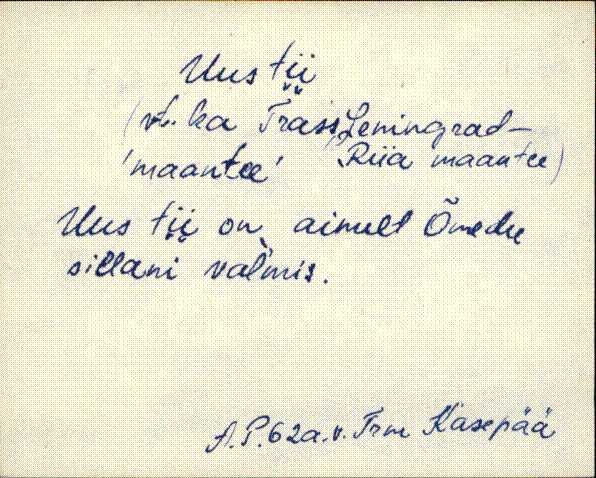 Uus tii
(vt. ka Trass, Leningrad-
'maantee' Riia maantee)
Uus tii on aimult Õmedu
sillani val'mis.
A.P. 62 a.v. Trm Kasepää